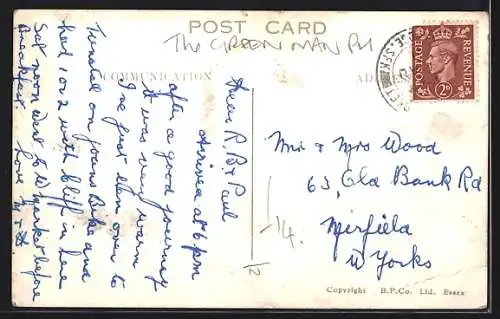 POST CARD
The GREEN MAN PH
COMMUNICATION
POSTAGE REVENUE
2D
Dear R, B & Paul
Arrived at 6 pm
after a good journey
It was very warm
I've just been over to
Tunstall on Joans Bike and
had 1 or 2 with Cliff in here
Sat noon went to W market before
Breakfast. Love
Mr & Mrs Wood
63, Old Bank Rd
Mirfield
W Yorks
-/14.
12
Copyright B.P.Co. Ltd. Essex